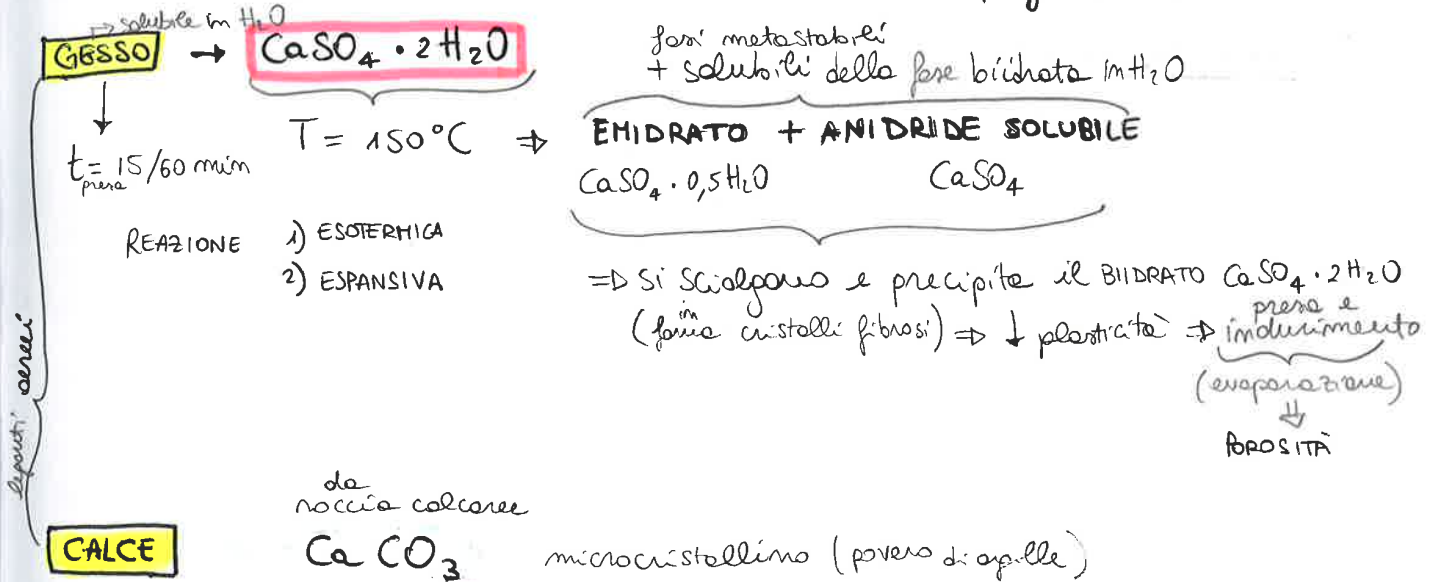 solubile in H₂O
GESSO → CaSO₄ · 2H₂O
fasi metastabili
+ solubili della fase biidrata in H₂O
T = 150°C ⇒ EMIDRATO + ANIDRIDE SOLUBILE
t presa = 15/60 min
CaSO₄ · 0,5H₂O CaSO₄
REAZIONE 1) ESOTERMICA
2) ESPANSIVA
⇒ Si sciolgono e precipita il BIIDRATO CaSO₄ · 2H₂O
(in forma cristalli fibrosi) ⇒ ↓ plasticità ⇒ presa e indurimento
(evaporazione)
⇓
POROSITÀ
leganti aerei
da
roccia calcaree
CALCE CaCO₃ microcristallino (povero di argille)